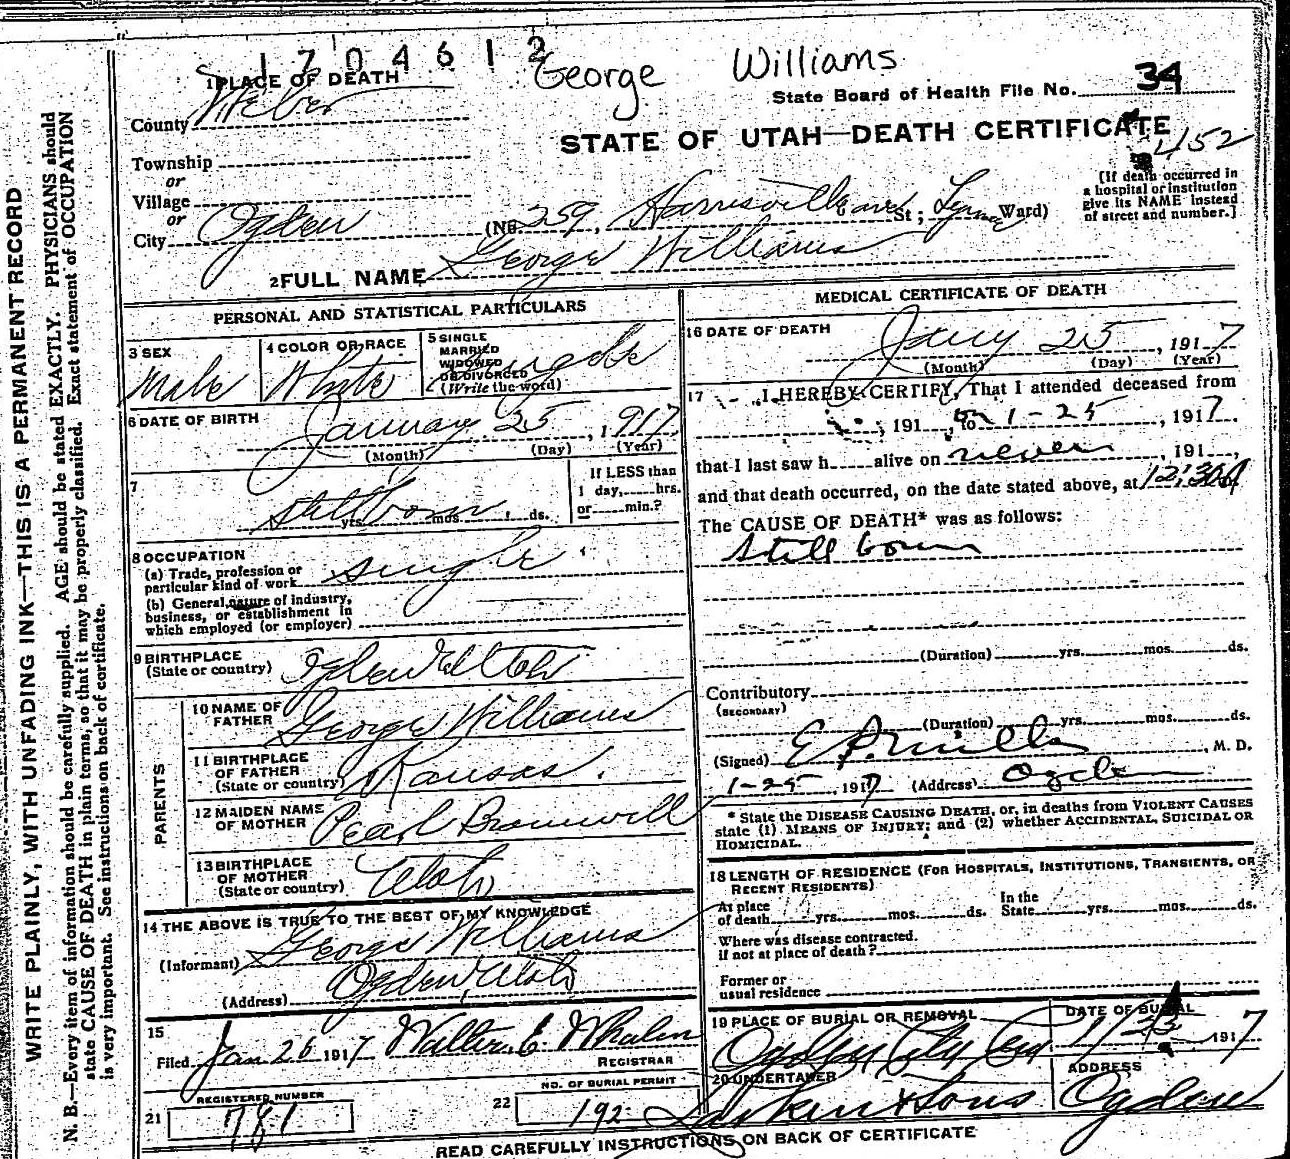 1704612 George Williams
1 PLACE OF DEATH
State Board of Health File No. 34
County Weber
STATE OF UTAH—DEATH CERTIFICATE
452
Township
or
Village
or
City Ogden (No. 259, Harrisville and St; Lynne Ward)
[If death occurred in
a hospital or institution
give its NAME instead
of street and number.]
2 FULL NAME George Williams
PERSONAL AND STATISTICAL PARTICULARS
3 SEX
Male
4 COLOR OR RACE
White
5 SINGLE
MARRIED
WIDOWED
OR DIVORCED
(Write the word)
Single
6 DATE OF BIRTH
January 25, 1917
(Month) (Day) (Year)
7
Stillborn
yrs. mos. ds.
If LESS than
1 day, hrs.
or min.?
8 OCCUPATION
(a) Trade, profession or
particular kind of work single
(b) General nature of industry,
business, or establishment in
which employed (or employer)
9 BIRTHPLACE
(State or country) Ogden Utah
PARENTS
10 NAME OF
FATHER George Williams
11 BIRTHPLACE
OF FATHER
(State or country) Kansas.
12 MAIDEN NAME
OF MOTHER Pearl Bramwell
13 BIRTHPLACE
OF MOTHER
(State or country) Utah
14 THE ABOVE IS TRUE TO THE BEST OF MY KNOWLEDGE
(Informant) George Williams
(Address) Ogden, Utah
15
Filed Jan 26 1917 Walter E. Whalen
REGISTRAR
21 REGISTERED NUMBER
781
22 NO. OF BURIAL PERMIT
192
MEDICAL CERTIFICATE OF DEATH
16 DATE OF DEATH
Jany 25, 1917
(Month) (Day) (Year)
17 I HEREBY CERTIFY, That I attended deceased from
, 191 , to on 1-25, 1917.
that I last saw h alive on never, 191 ,
and that death occurred, on the date stated above, at 12:30 A
The CAUSE OF DEATH* was as follows:
Still born
(Duration) yrs. mos. ds.
Contributory
(SECONDARY)
(Duration) yrs. mos. ds.
(Signed) E P Mills, M. D.
1-25 1917 (Address) Ogden
* State the DISEASE CAUSING DEATH, or, in deaths from VIOLENT CAUSES
state (1) MEANS OF INJURY; and (2) whether ACCIDENTAL, SUICIDAL OR
HOMICIDAL.
18 LENGTH OF RESIDENCE (FOR HOSPITALS, INSTITUTIONS, TRANSIENTS, OR
RECENT RESIDENTS)
At place
of death yrs. mos. ds.
In the
State yrs. mos. ds.
Where was disease contracted.
if not at place of death?
Former or
usual residence
19 PLACE OF BURIAL OR REMOVAL
Ogden City Cem
DATE OF BURIAL
1917
20 UNDERTAKER
Larkin & Sons
ADDRESS
Ogden
READ CAREFULLY INSTRUCTIONS ON BACK OF CERTIFICATE
WRITE PLAINLY, WITH UNFADING INK—THIS IS A PERMANENT RECORD
N. B.—Every item of information should be carefully supplied. AGE should be stated EXACTLY. PHYSICIANS should
state CAUSE OF DEATH in plain terms, so that it may be properly classified. Exact statement of OCCUPATION
is very important. See instructions on back of certificate.